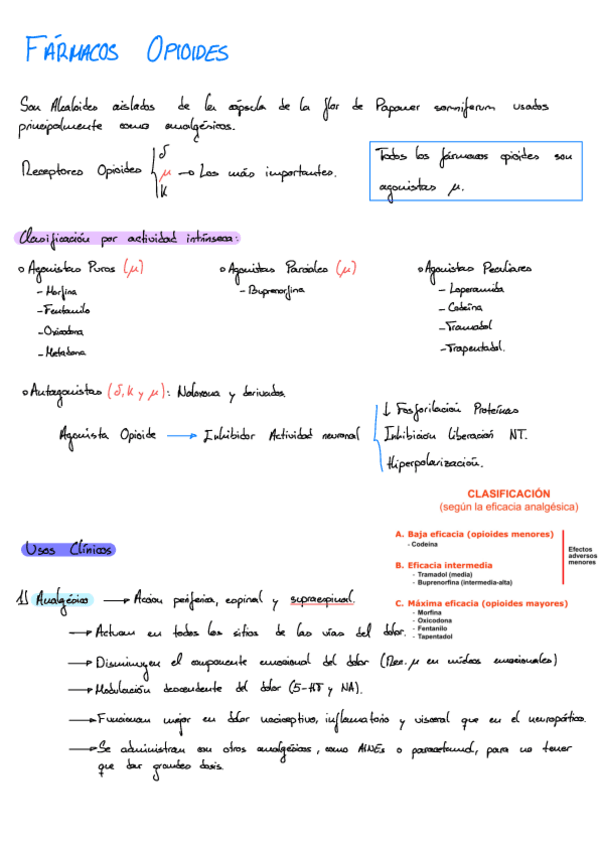 FÁRMACOS OPIOIDES
Son Alcaloides aislados de la cápsula de la flor de Papaver somniferum usados
principalmente como analgésicos.
Receptores Opioides
δ
μ → Los más importantes.
K
Todos los fármacos opioides son
agonistas μ.
Clasificación por actividad intrínseca:
o Agonistas Puros (μ)
- Morfina
- Fentanilo
- Oxicodona
- Metadona
o Agonistas Parciales (μ)
- Buprenorfina
o Agonistas Peculiares
- Loperamida
- Codeína
- Tramadol
- Trapentadol.
o Antagonistas (δ, K y μ): Naloxona y derivados.
Agonista Opioide → Inhibidor Actividad neuronal
↓ Fosforilación Proteínas
Inhibición liberación NT.
Hiperpolarización.
CLASIFICACIÓN
(según la eficacia analgésica)
A. Baja eficacia (opioides menores)
- Codeína
B. Eficacia intermedia
- Tramadol (media)
- Buprenorfina (intermedia-alta)
C. Máxima eficacia (opioides mayores)
- Morfina
- Oxicodona
- Fentanilo
- Tapentadol
Efectos
adversos
menores
Usos Clínicos
1) Analgésico → Acción periférica, espinal y supraespinal.
→ Actúan en todos los sitios de las vías del dolor.
→ Disminuyen el componente emocional del dolor (Rec. μ en núcleos emocionales)
→ Modulación descendente del dolor (5-HT y NA).
→ Funcionan mejor en dolor nociceptivo, inflamatorio y visceral que en el neuropático.
→ Se administran con otros analgésicos, como AINEs o paracetamol, para no tener
que dar grandes dosis.